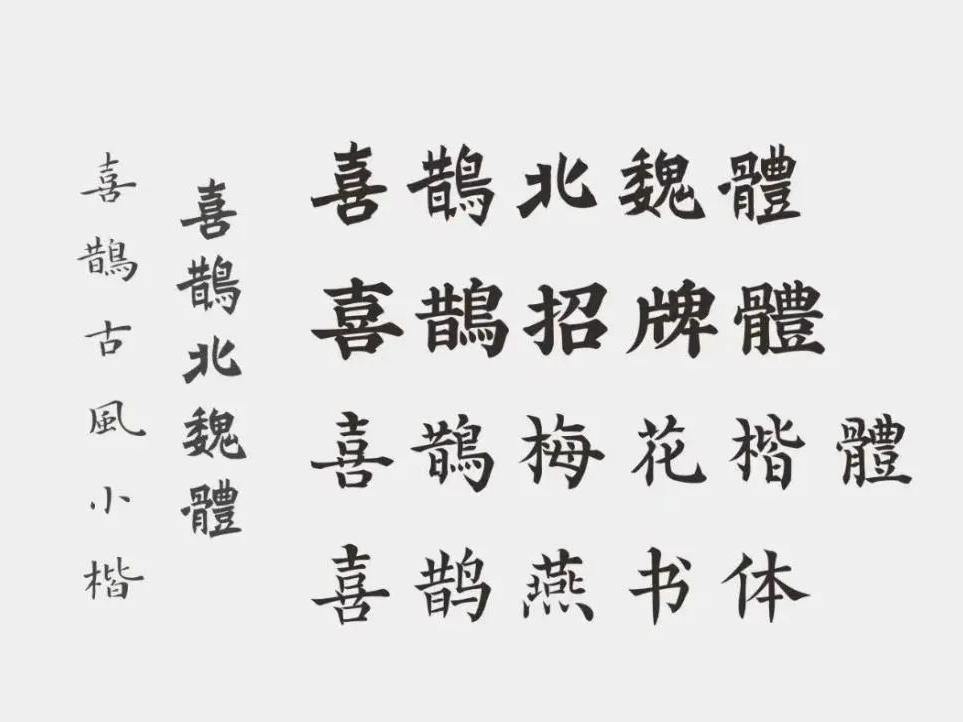 喜鵲古風小楷
喜鵲北魏體
喜鵲北魏體
喜鵲招牌體
喜鵲梅花楷體
喜鹊燕书体